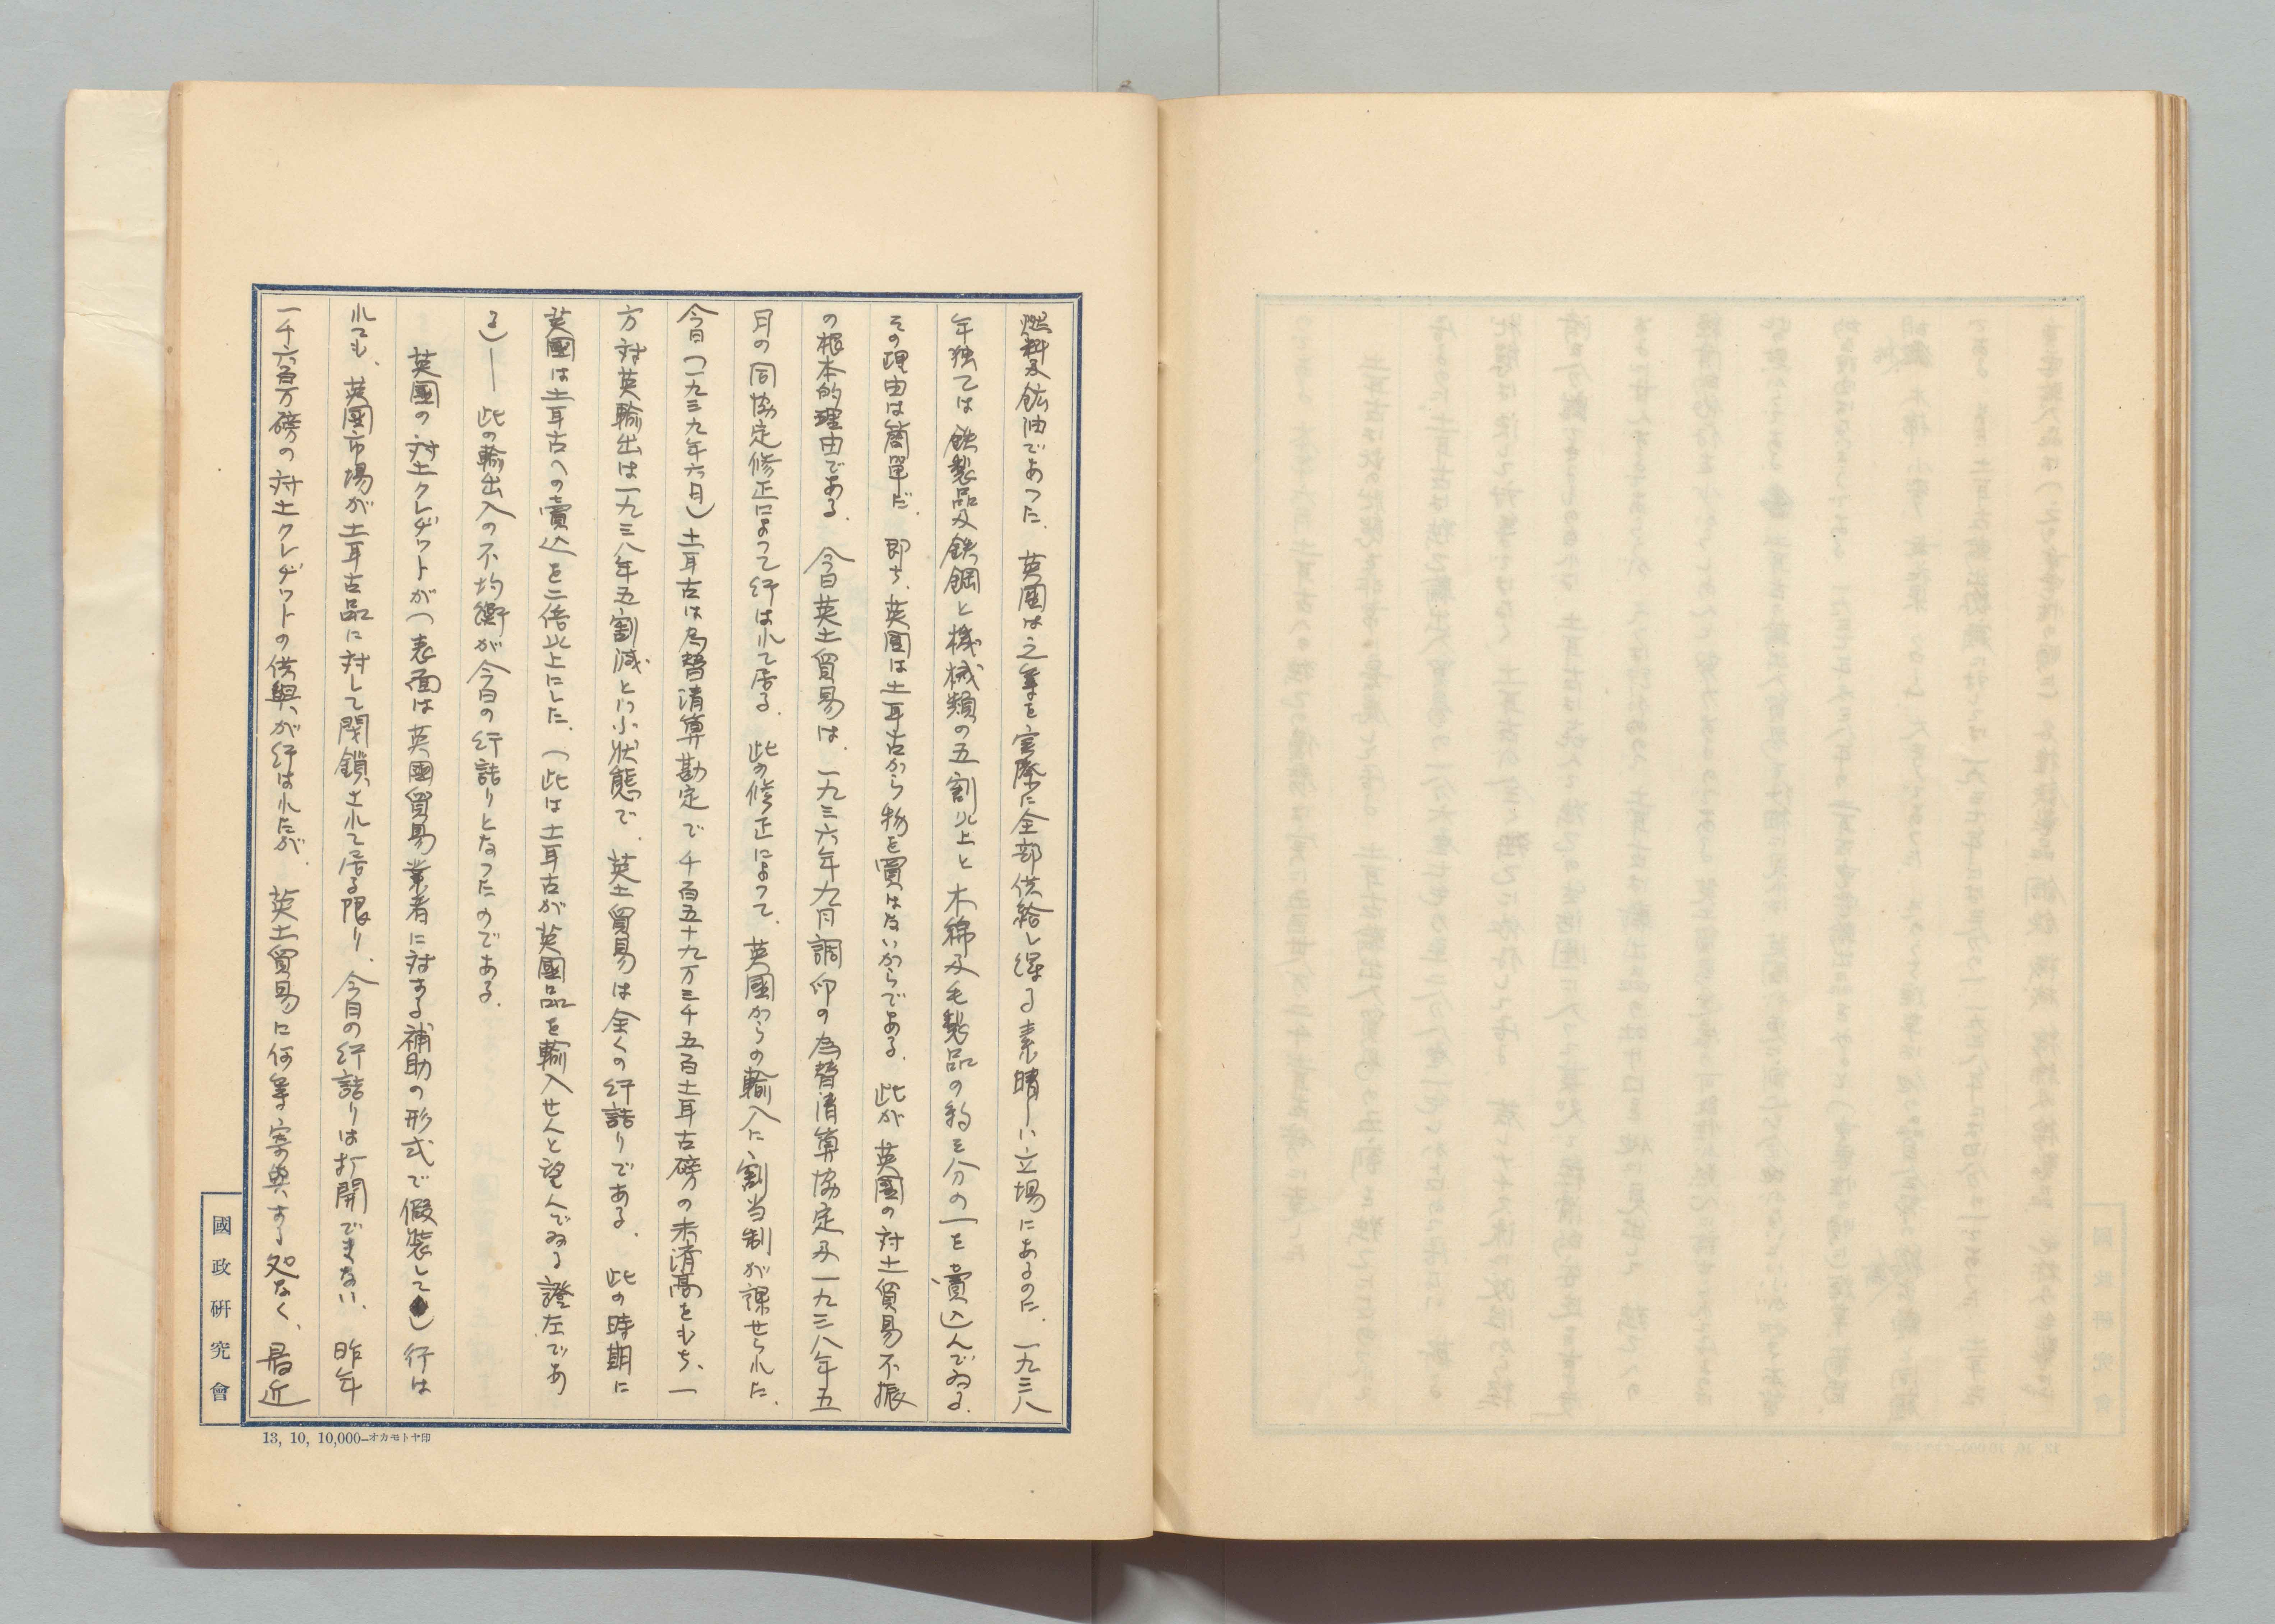 燃料及鉱油であつた．英國は之等を実際に全部供給し得る素晴しい立場にあるのに．一九三八
年独乙は鉄製品及鉄鋼と機械類の五割以上と木綿及毛製品の約三分の一を賣込んでゐる．
その理由は簡單だ．即ち、英國は土耳古から物を買はないからである．此が英國の対土貿易不振
の根本的理由である．今日英土貿易は．一九三六年九月調印の為替清算協定及一九三八年五
月の同協定修正によつて行はれて居る．此の修正によつて．英國からの輸入に割当制が課せられた．
今日（一九三九年六月）土耳古は為替清算勘定で千百五十九万三千五百土耳古磅の未済高をもち、一
方対英輸出は一九三八年五割減といふ状態で．英土貿易は全くの行詰りである．此の時期に
英國は土耳古への賣込を二倍以上にした．（此は土耳古が英國品を輸入せんと望んでゐる證左であ
る）―此の輸出入の不均衡が今日の行詰りとなつたのである．
英國の対土クレヂットが（表面は英國貿易業者に対する補助の形式で假装して）行は
れても、英國市場が土耳古品に対して閉鎖されて居る限り、今日の行詰りは打開できない．昨年
一千六百万磅の対土クレヂットの供與が行はれたが．英土貿易に何等寄與する処なく、最近
國政研究會
13, 10, 10,000—オカモトヤ印